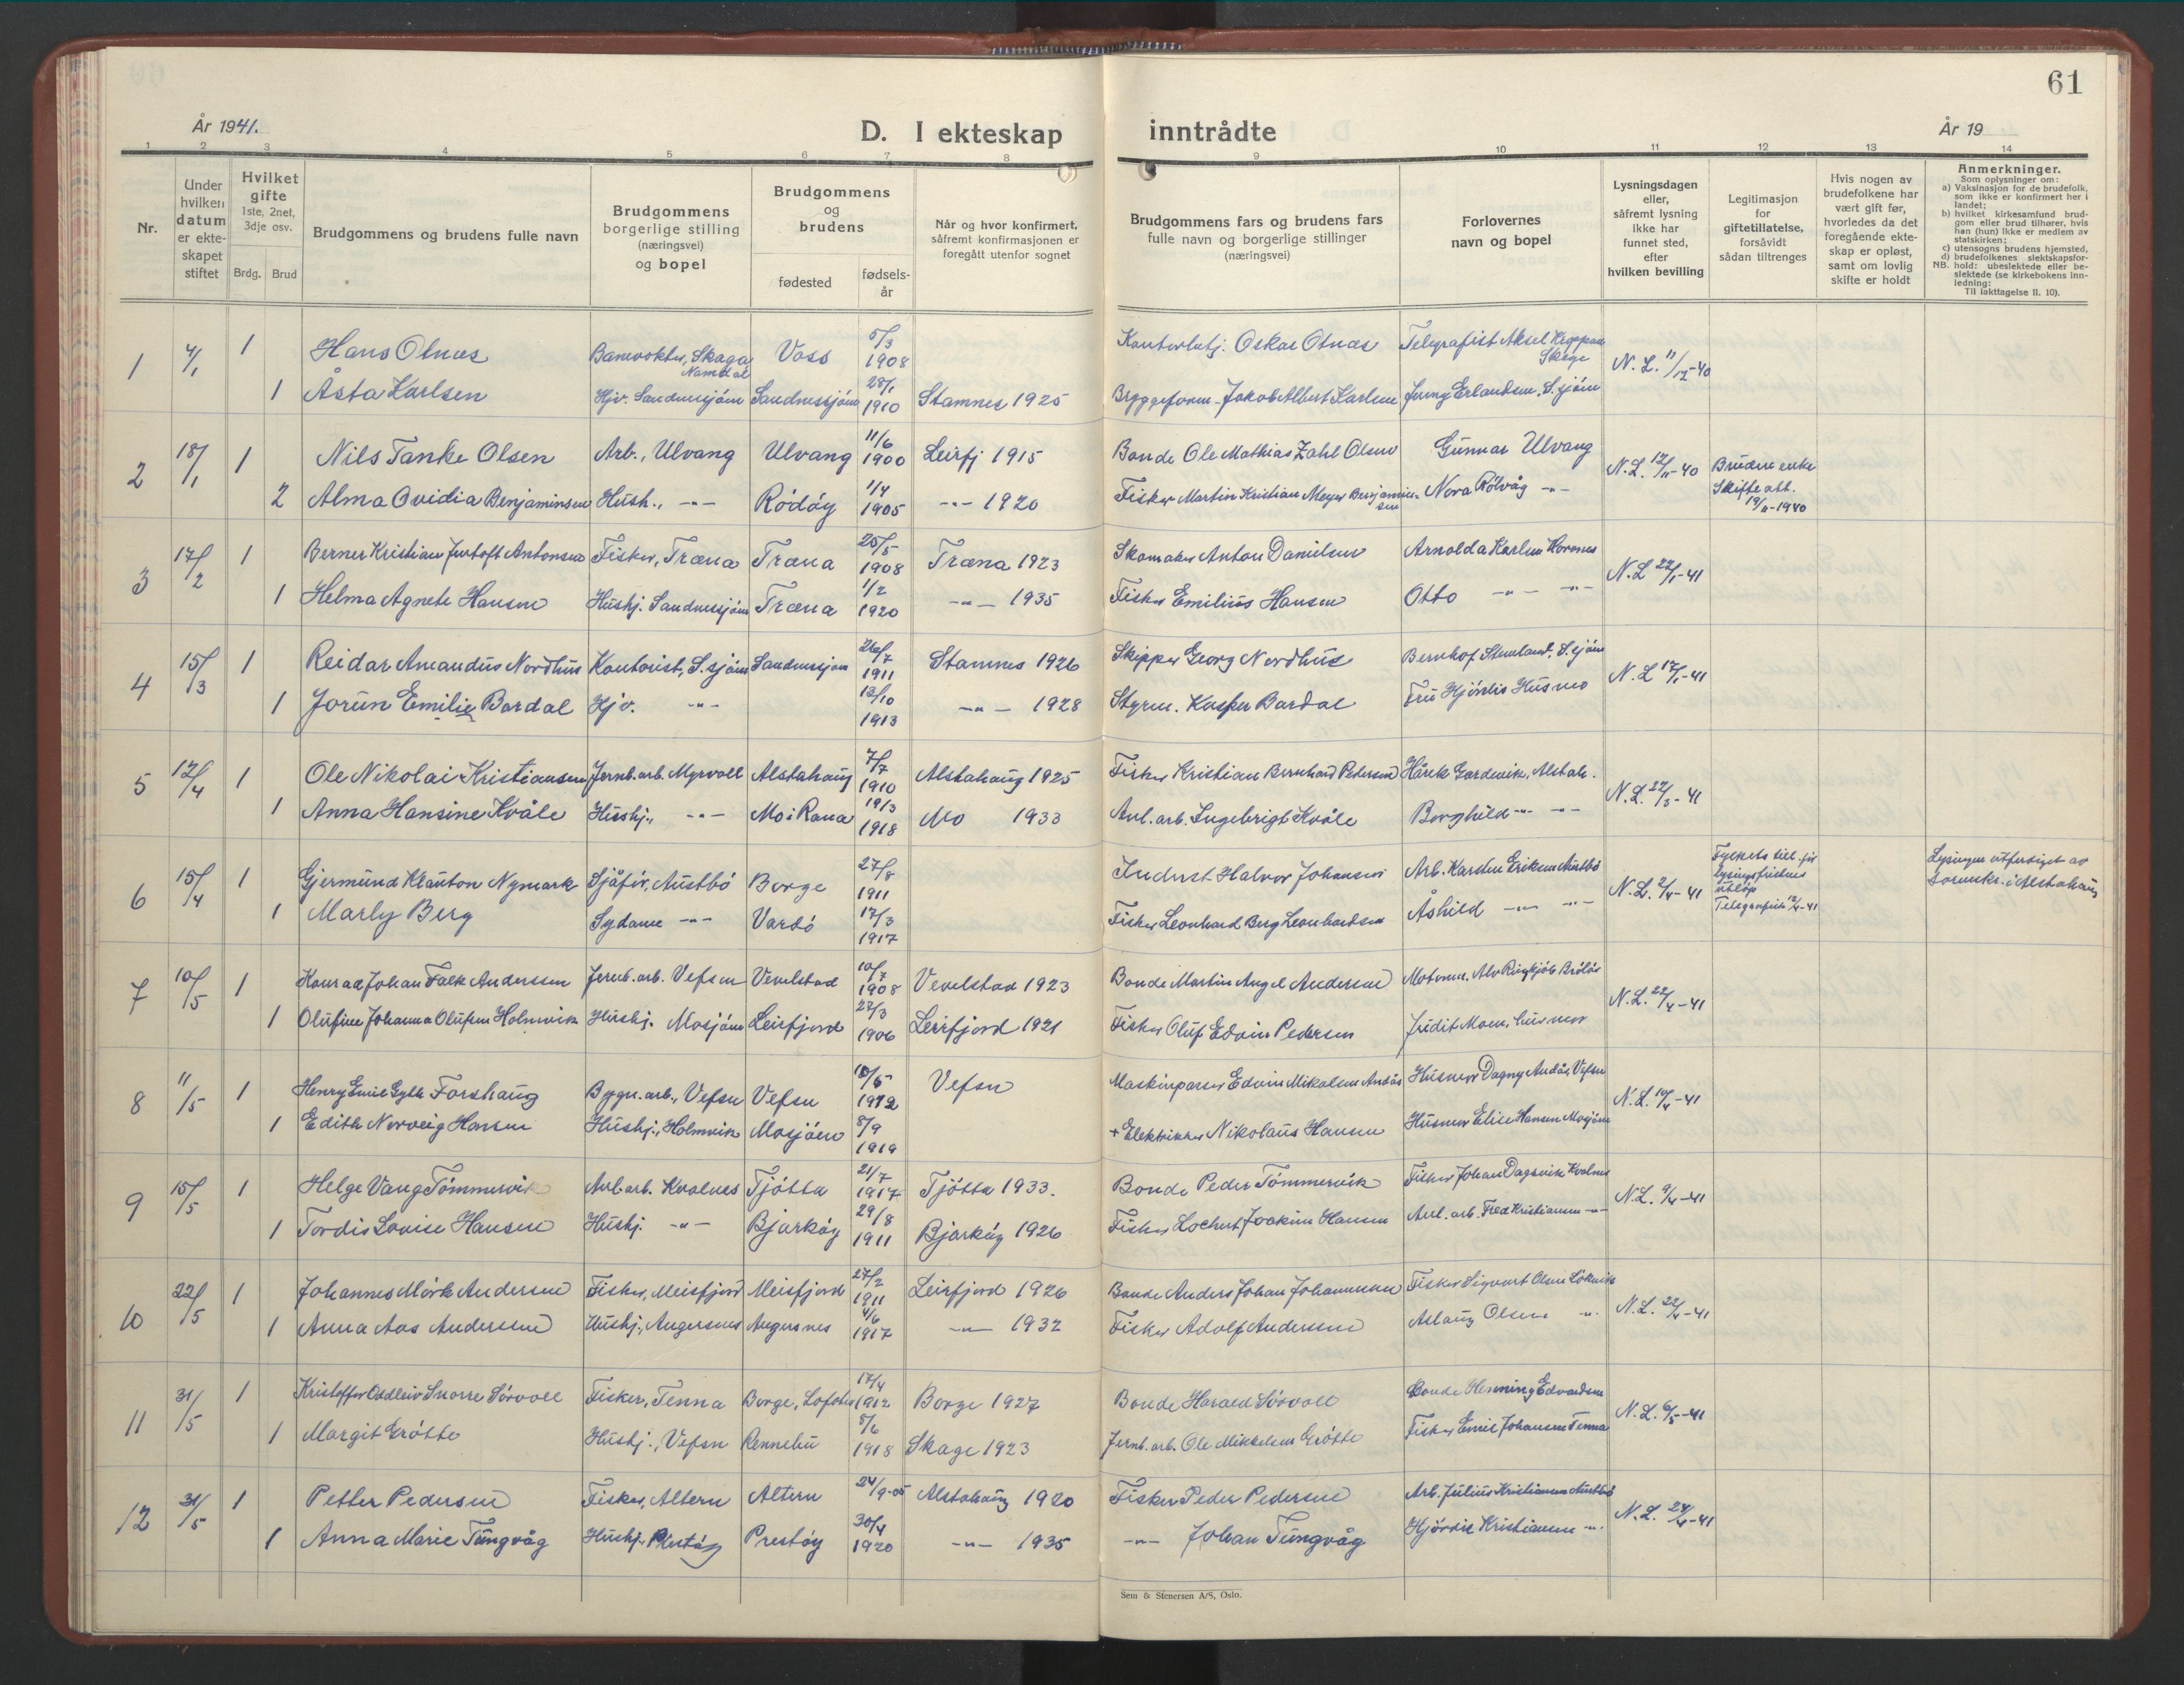 61
År 1941.
D. I ekteskap inntrådte
År 19
1 2 3 4 5 6 7 8 9 10 11 12 13 14
Nr.
Under hvilken datum er ekte-skapet stiftet
Hvilket gifte 1ste, 2net, 3dje osv.
Brdg. Brud
Brudgommens og brudens fulle navn
Brudgommens borgerlige stilling (næringsvei) og bopel
Brudgommens og brudens
fødested
fødsels-år
Når og hvor konfirmert, såfremt konfirmasjonen er foregått utenfor sognet
Brudgommens fars og brudens fars fulle navn og borgerlige stillinger (næringsvei)
Forlovernes navn og bopel
Lysningsdagen eller, såfremt lysning ikke har funnet sted, efter hvilken bevilling
Legitimasjon for giftetillatelse, forsåvidt sådan tiltrenges
Hvis nogen av brudefolkene har vært gift før, hvorledes da det foregående ekte-skap er opløst, samt om lovlig skifte er holdt
Anmerkninger.
Som oplysninger om:
a) Vaksinasjon for de brudefolk, som ikke er konfirmert her i landet;
b) hvilket kirkesamfund brud-gom eller brud tilhører, hvis han (hun) ikke er medlem av statskirken;
c) utensogns brudens hjemsted,
d) brudefolkenes slektskapsfor-hold: ubeslektede eller be-slektede (se kirkebokens inn-ledning:
NB.
Til iakttagelse II. 10).
1 4/1 1 Hans Olnes Banevokter, Skage Namdal Voss 5/3 1908 Oskar Telegrafist Aksel Skage N.L. 11/12-40
1 Åsta Karlsen Hjv. Sandnessjøen Sandnessjøen 28/1 1910 Stamnes 1925 Bryggeform. Jakob Albert Karlsen Jenny Erlandsen, S.sjøen
2 18/1 1 Nils Tanke Olsen Arb., Ulvang Ulvang 11/6 1900 Leirfj 1915 Bonde Ole Mathias Zahl Olsen Gunnar Ulvang N.L. 12/11-40 Brudens enke
2 Alma Ovidia Benjaminsen Hush., -"- Rödöy 1/4 1905 -"- 1920 Fisker Martin Kristian Meyer Benjaminsen Nora Rölvåg -"- Skifte att. 19/11-1940
3 17/2 1 Berner Kristian Jentoft Antonsen Fisker, Træna Træna 25/5 1908 Træna 1923 Skomaker Anton Danielsen Arnolda Karlsen N.L. 22/1-41
1 Helma Agnete Hansen Hushj. Sandnessjøen Træna 1/2 1920 -"- 1935 Fisker Emilius Hansen Otto -"- -"-
4 15/3 1 Reidar Amandus Nordhus Kontorist, S.sjøen Sandnessjøen 26/7 1911 Stamnes 1926 Skipper Georg Nordhus S.sjøen N.L. 17/1-41
1 Jorun Emilie Bardal Hjv. -"- 12/10 1913 -"- 1928 Styrm. Kasper Bardal Fru Hjördis Husmo
5 12/4 1 Ole Nikolai Kristiansen Jernb.arb. Myrvoll Alstahaug 7/7 1910 Alstahaug 1925 Fisker Kristian Bernhard Pedersen Hårek Gardsvik, Alstah. N.L. 22/3-41
1 Anna Hansine Kvåle Hushj., -"- Mo i Rana 19/3 1918 Mo 1933 Anl.arb. Ingebrigt Kvåle Borghild -"- -"-
6 15/4 1 Gjermund Klauton Nymark Sjåfør, Austbö Borge 27/8 1911 Halvor Johansen Arb. Karsten Eriksen Austbö N.L. 2/4-41 Fylkets till. før lysingsfristens utløp Telegrafisk 12/4-41 Lysingen utferdiget av sorenskr. i Alstahaug
1 Marly Berg Sydame -"- Vardö 17/3 1917 Fisker Leonhard Berg Leonhardsen Åshild -"- -"-
7 10/5 1 Konrad Johan Falk Anderssen Jernb.arb. Vefsn Vevelstad 10/7 1908 Vevelstad 1923 Bonde Martin Angel Andersen N.L. 22/4-41
1 Olufine Johanna Olufsen Holmvik Hushj. Mosjøen Leirfjord 27/3 1906 Leirfjord 1921 Fisker Oluf Edvin Pedersen Judit Moen, husmor
8 11/5 1 Henry Emil Gyth Forshaug Bygn.arb., Vefsn Vefsn 10/5 1912 Vefsn Maskinpasser Edvin Mikalsen Andås Husmor Dagny Andås, Vefsn N.L. 19/4-41
1 Edith Norveig Hansen Hushj., Holmvik Mosjøen 8/9 1919 + Elektriker Nikolaus Hansen Husmor Elise Hansen Mosjøen
9 15/5 1 Helge Vang Tömmervik Anl.arb. Kvalnes Tjötta 21/7 1917 Tjötta 1933. Bonde Peder Tömmervik Fisker Johan Dagsvik Kvalnes N.L. 9/4-41
1 Tordis Lovise Hansen Hushj. -"- Bjarköy 29/8 1911 Bjarköy 1926 Fisker Joakim Hansen Anl.arb. Fred Kristiansen -"-
10 22/5 1 Johannes Mörk Andersen Fisker, Meisfjord Meisfjord 27/2 1911 Leirfjord 1926 Bonde Anders Johan Johannesen Fisker Sigvart Olsen N.L. 22/4-41
1 Anna Aas Anderssen Hushj., Angersnes Angersnes 4/6 1917 -"- 1932 Fisker Adolf Anderssen Aslaug Olsen -"-
11 31/5 1 Kristoffer Oddleiv Snorre Sörvoll Fisker, Tenna Borge, Lofoten 17/4 1912 Borge 1927 Bonde Harald Sörvoll Bonde Henning Edvardsen N.L. 6/5-41
1 Margit Grötte Hushj., Vefsn Rennebu 8/6 1918 Skage 1923 Jernb.arb. Ole Mikkelsen Grötte Fisker Emil Johansen Tenna
12 31/5 1 Petter Pedersen Fisker, Altern Altern 24/9-05 Alstahaug 1920 Fisker Peder Pedersen Arb. Julius Kristiansen Austbö N.L. 24/4-41
1 Anna Marie Tungvåg Hushj. Prestöy Prestöy 30/4 1920 -"- 1935 -"- Johan Tungvåg Hjördis Kristiansen -"-
Sem & Stenersen A/S, Oslo.